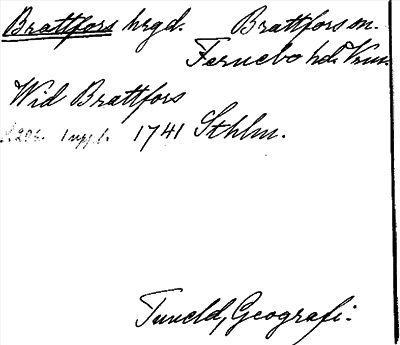 Brattfors hrgd. Brattfors sn.
Fernebo hd. Vrm.
Wid Brattfors
s. 206. 1 uppl. 1741 Sthlm.
Tuneld, Geografi.